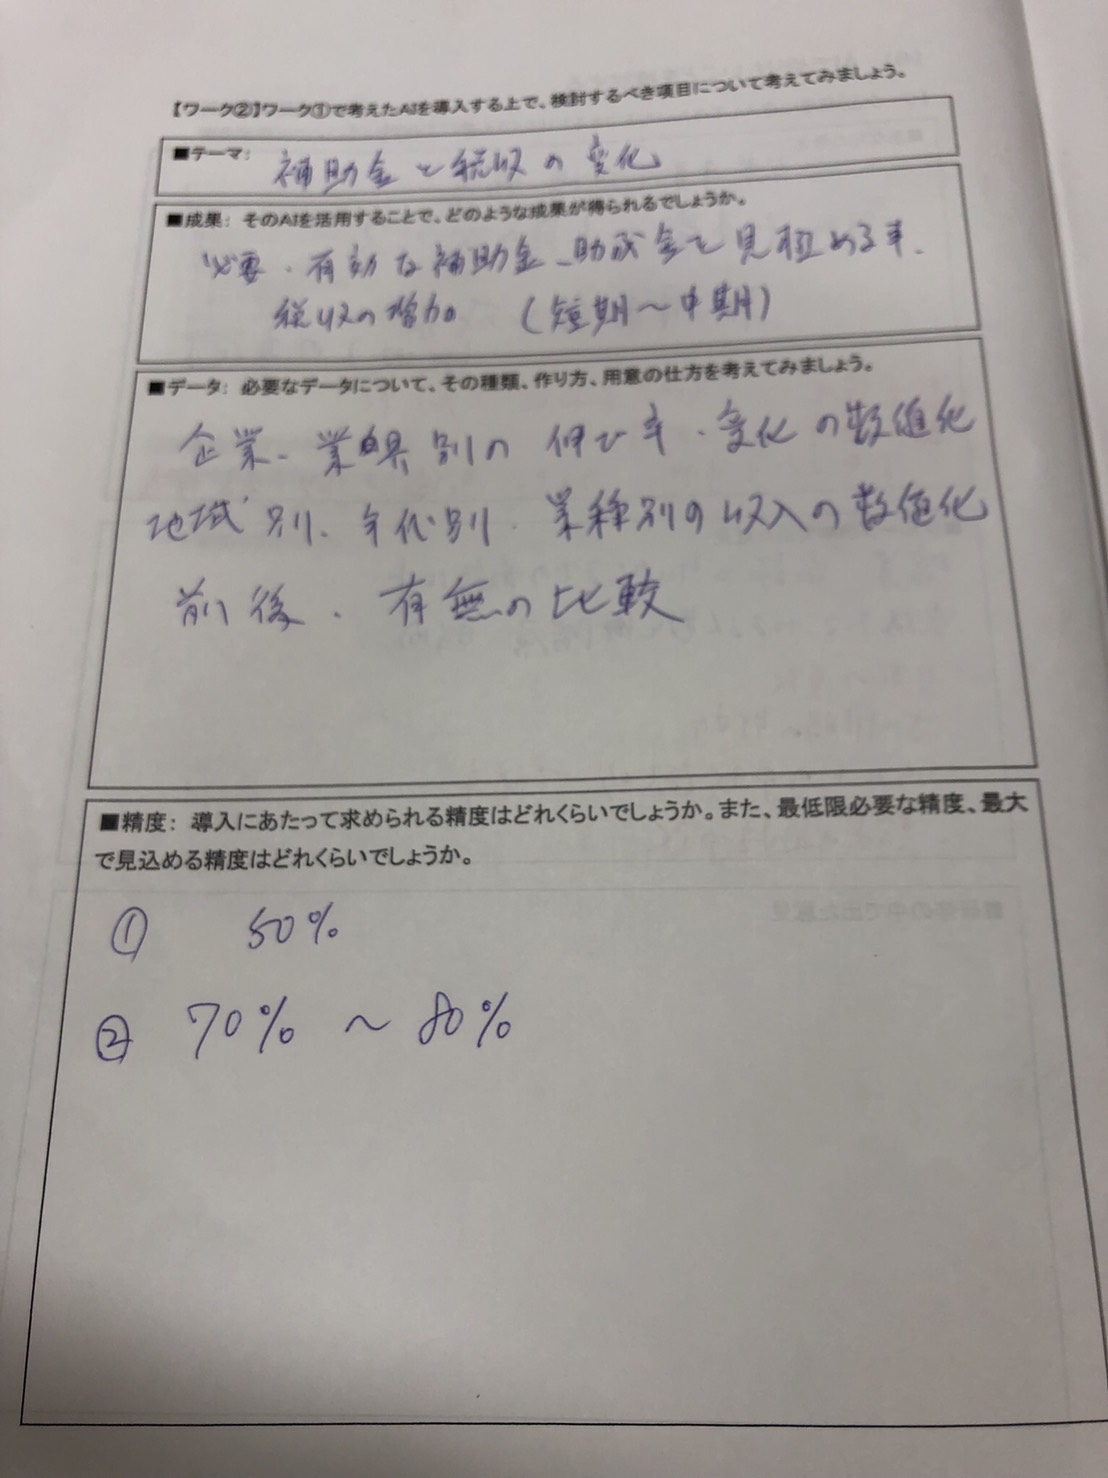 【ワーク②】ワーク①で考えたAIを導入する上で、検討するべき項目について考えてみましょう。
■テーマ: 補助金と税収の変化
■成果: そのAIを活用することで、どのような成果が得られるでしょうか。
必要・有効な補助金、助成金を見極める事、
税収の増加 (短期〜中期)
■データ: 必要なデータについて、その種類、作り方、用意の仕方を考えてみましょう。
企業、業界別の伸び率、変化の数値化
地域別、年代別、業種別の収入の数値化
前後、有無の比較
■精度: 導入にあたって求められる精度はどれくらいでしょうか。また、最低限必要な精度、最大
で見込める精度はどれくらいでしょうか。
① 50%
② 70% 〜 80%